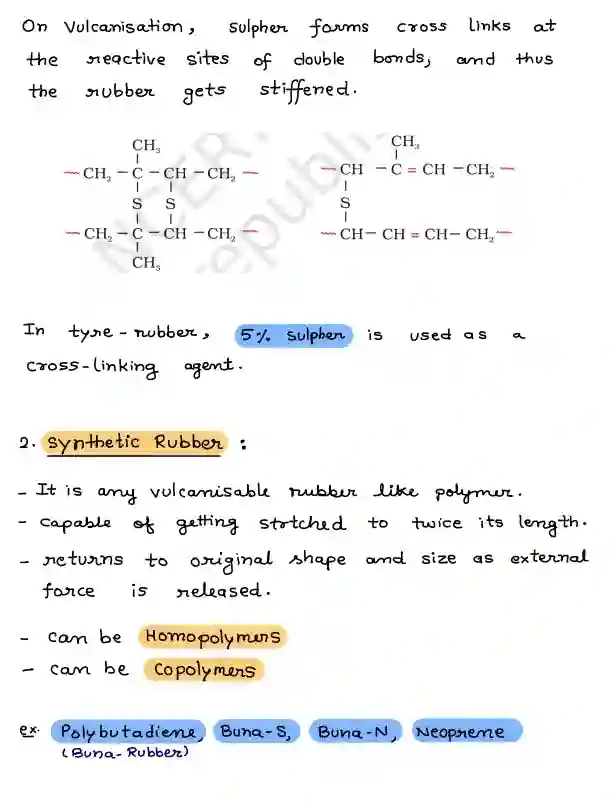 On Vulcanisation, Sulpher forms cross links at
the reactive sites of double bonds, and thus
the rubber gets stiffened.
CH₃
CH₂ – C – CH – CH₂
S S
CH₂ – C – CH – CH₂
CH₃
CH₃
CH – C = CH – CH₂
S
CH – CH = CH – CH₂
In tyre-rubber, 5% Sulpher is used as a
cross-linking agent.
2. Synthetic Rubber :
- It is any vulcanisable rubber like polymer.
- capable of getting strtched to twice its length.
- returns to original shape and size as external
force is released.
- can be Homopolymers
- can be Copolymers
ex. Polybutadiene, Buna-S, Buna-N, Neoprene
(Buna-Rubber)